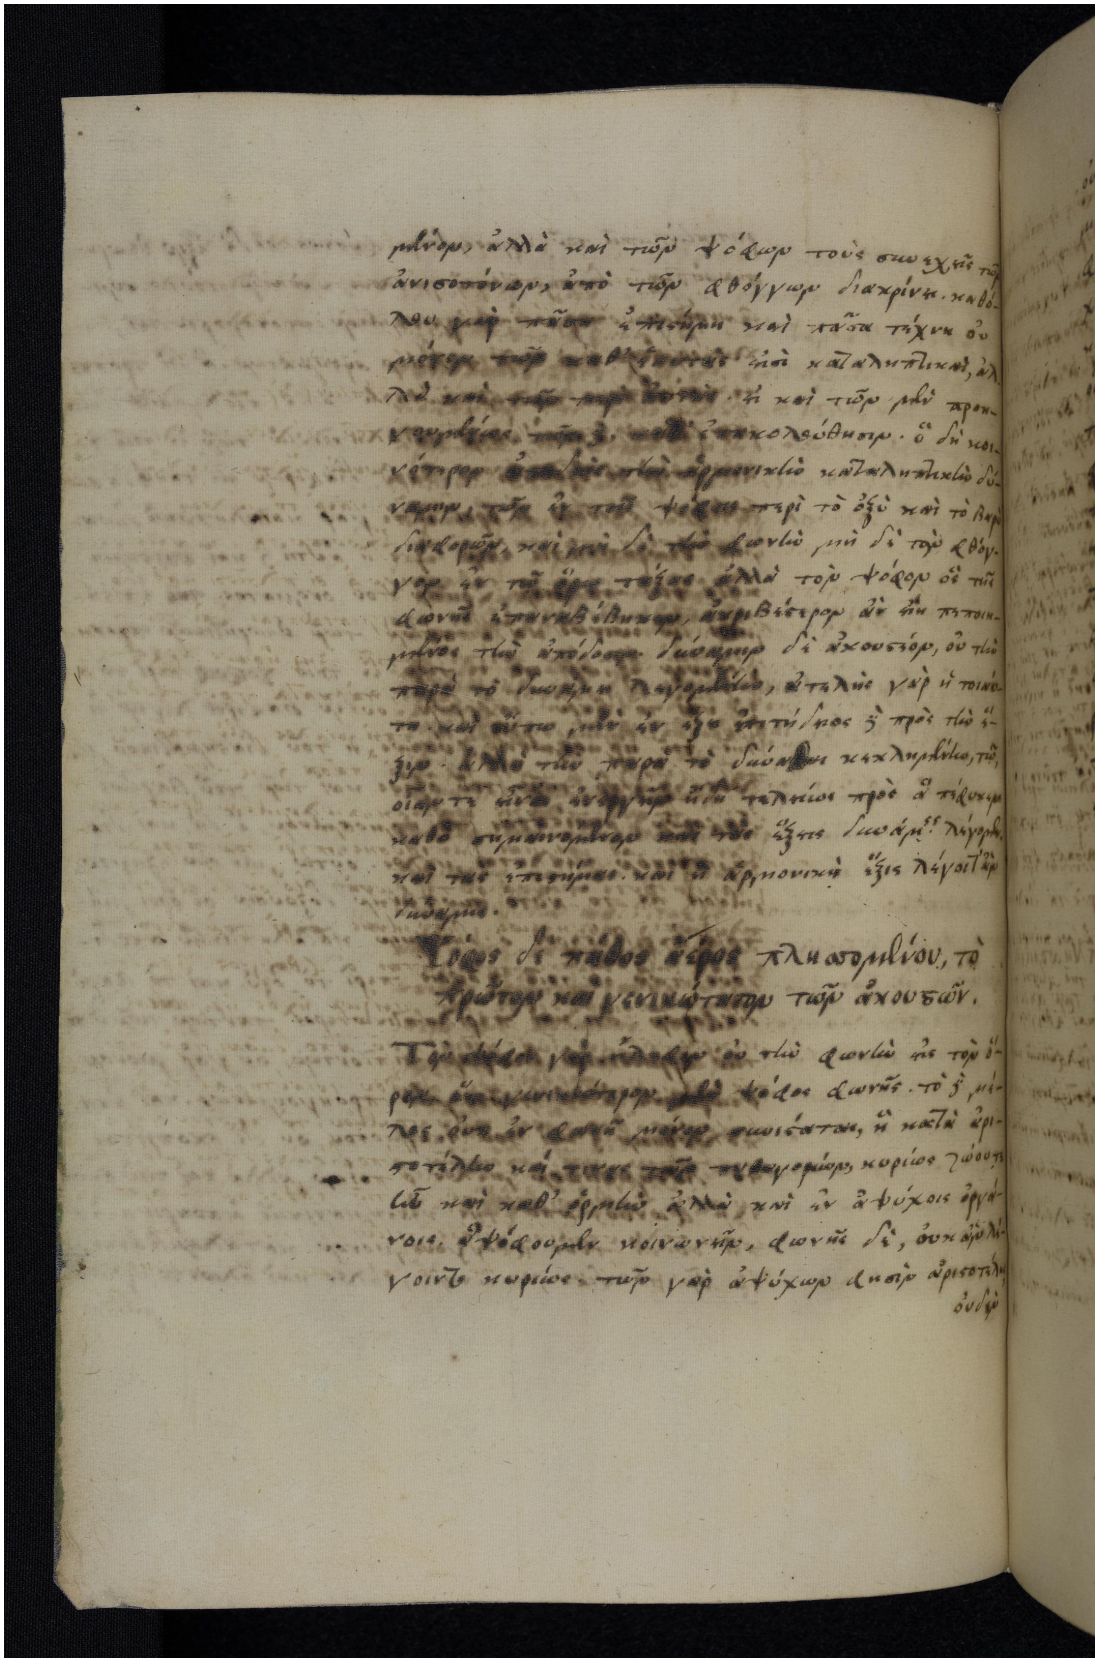 μένον, ἀλλὰ καὶ τῶν ψόφων τοὺς συνεχεῖς τῶν
ἀνισοτόνων, ἀπὸ τῶν φθόγγων διακρίνει. καθό-
λου γὰρ πᾶσα ἐπιστήμη καὶ πᾶσα τέχνη οὐ
μόνον τῶν καθ' ἑαυτάς εἰσι καταληπτικαὶ, ἀλ-
λὰ καὶ τῶν παρ' ἑαυτάς. εἰ καὶ τῶν μὲν προη-
γουμένως τῶν δὲ κατ' ἐπακολούθησιν. ὃ δὴ κοι-
νότερον τὴν ἁρμονικὴν καταληπτικὴν δύ-
ναμιν, τῶν ἐν τοῖς ψόφοις περὶ τὸ ὀξὺ καὶ τὸ βαρὺ
διαφορῶν, καὶ μὴ δὲ τὴν φωνὴν μὴ δὲ τὸν φθόγ-
γον ἐν τῷ ὅρῳ τάξας ἀλλὰ τὸν ψόφον ὃς τῆς
φωνῆς ἐπαναβέβηκεν, ἀκριβέστερον ἂν εἴη πεποιη-
μένος τὴν ἀπόδοσιν. δύναμιν δὲ ἀκουστέον, οὐ τὴν
παρὰ τὸ δυνάμει λεγομένην, ἀτελὴς γὰρ ἡ τοιαύ-
τη. καὶ οὔπω μὲν ἐν ἕξει ἐπιτήδειος δὲ πρὸς τὴν ἕ-
ξιν. ἀλλὰ τὴν παρὰ τὸ δύνασθαι κεκλημένην, τῷ,
οἵαν τε εἶναι ἐνεργεῖν ἤδη τελείως πρὸς ἃ πέφυκεν
καθὸ σημαινόμενον καὶ τὰς ἕξεις δυνάμεις λέγομεν.
καὶ τὰς ἐπιστήμας. καὶ ἡ ἁρμονικὴ ἕξις λέγοιτ' ἂν
δύναμις.
Ψόφος δὲ πάθος ἀέρος πλησσομένου, τὸ
πρῶτον καὶ γενικώτατον τῶν ἀκουστῶν.
Τὸν ψόφον γὰρ ἔλαβεν οὐ τὴν φωνὴν εἰς τὸν ὅ-
ρον. ὅτι γενικώτερον μὲν ψόφος φωνῆς. τὸ δὲ μέ-
λος οὐκ ἐν φωνῇ μόνον συνίσταται, ἣ κατὰ ἀρι-
στοτέλην καί τινας τῶν πυθαγορείων, κυρίως ζώου τε
ἐστὶ καὶ καθ' ὁρμὴν ἀλλὰ καὶ ἐν ἀψύχοις ὀργά-
νοις. ἃ ψόφου μὲν κοινωνεῖν, φωνῆς δὲ, οὐκ ἂν λέ-
γοιντο κυρίως. τῶν γὰρ ἀψύχων φησὶν ἀριστοτέλης
οὐδὲν